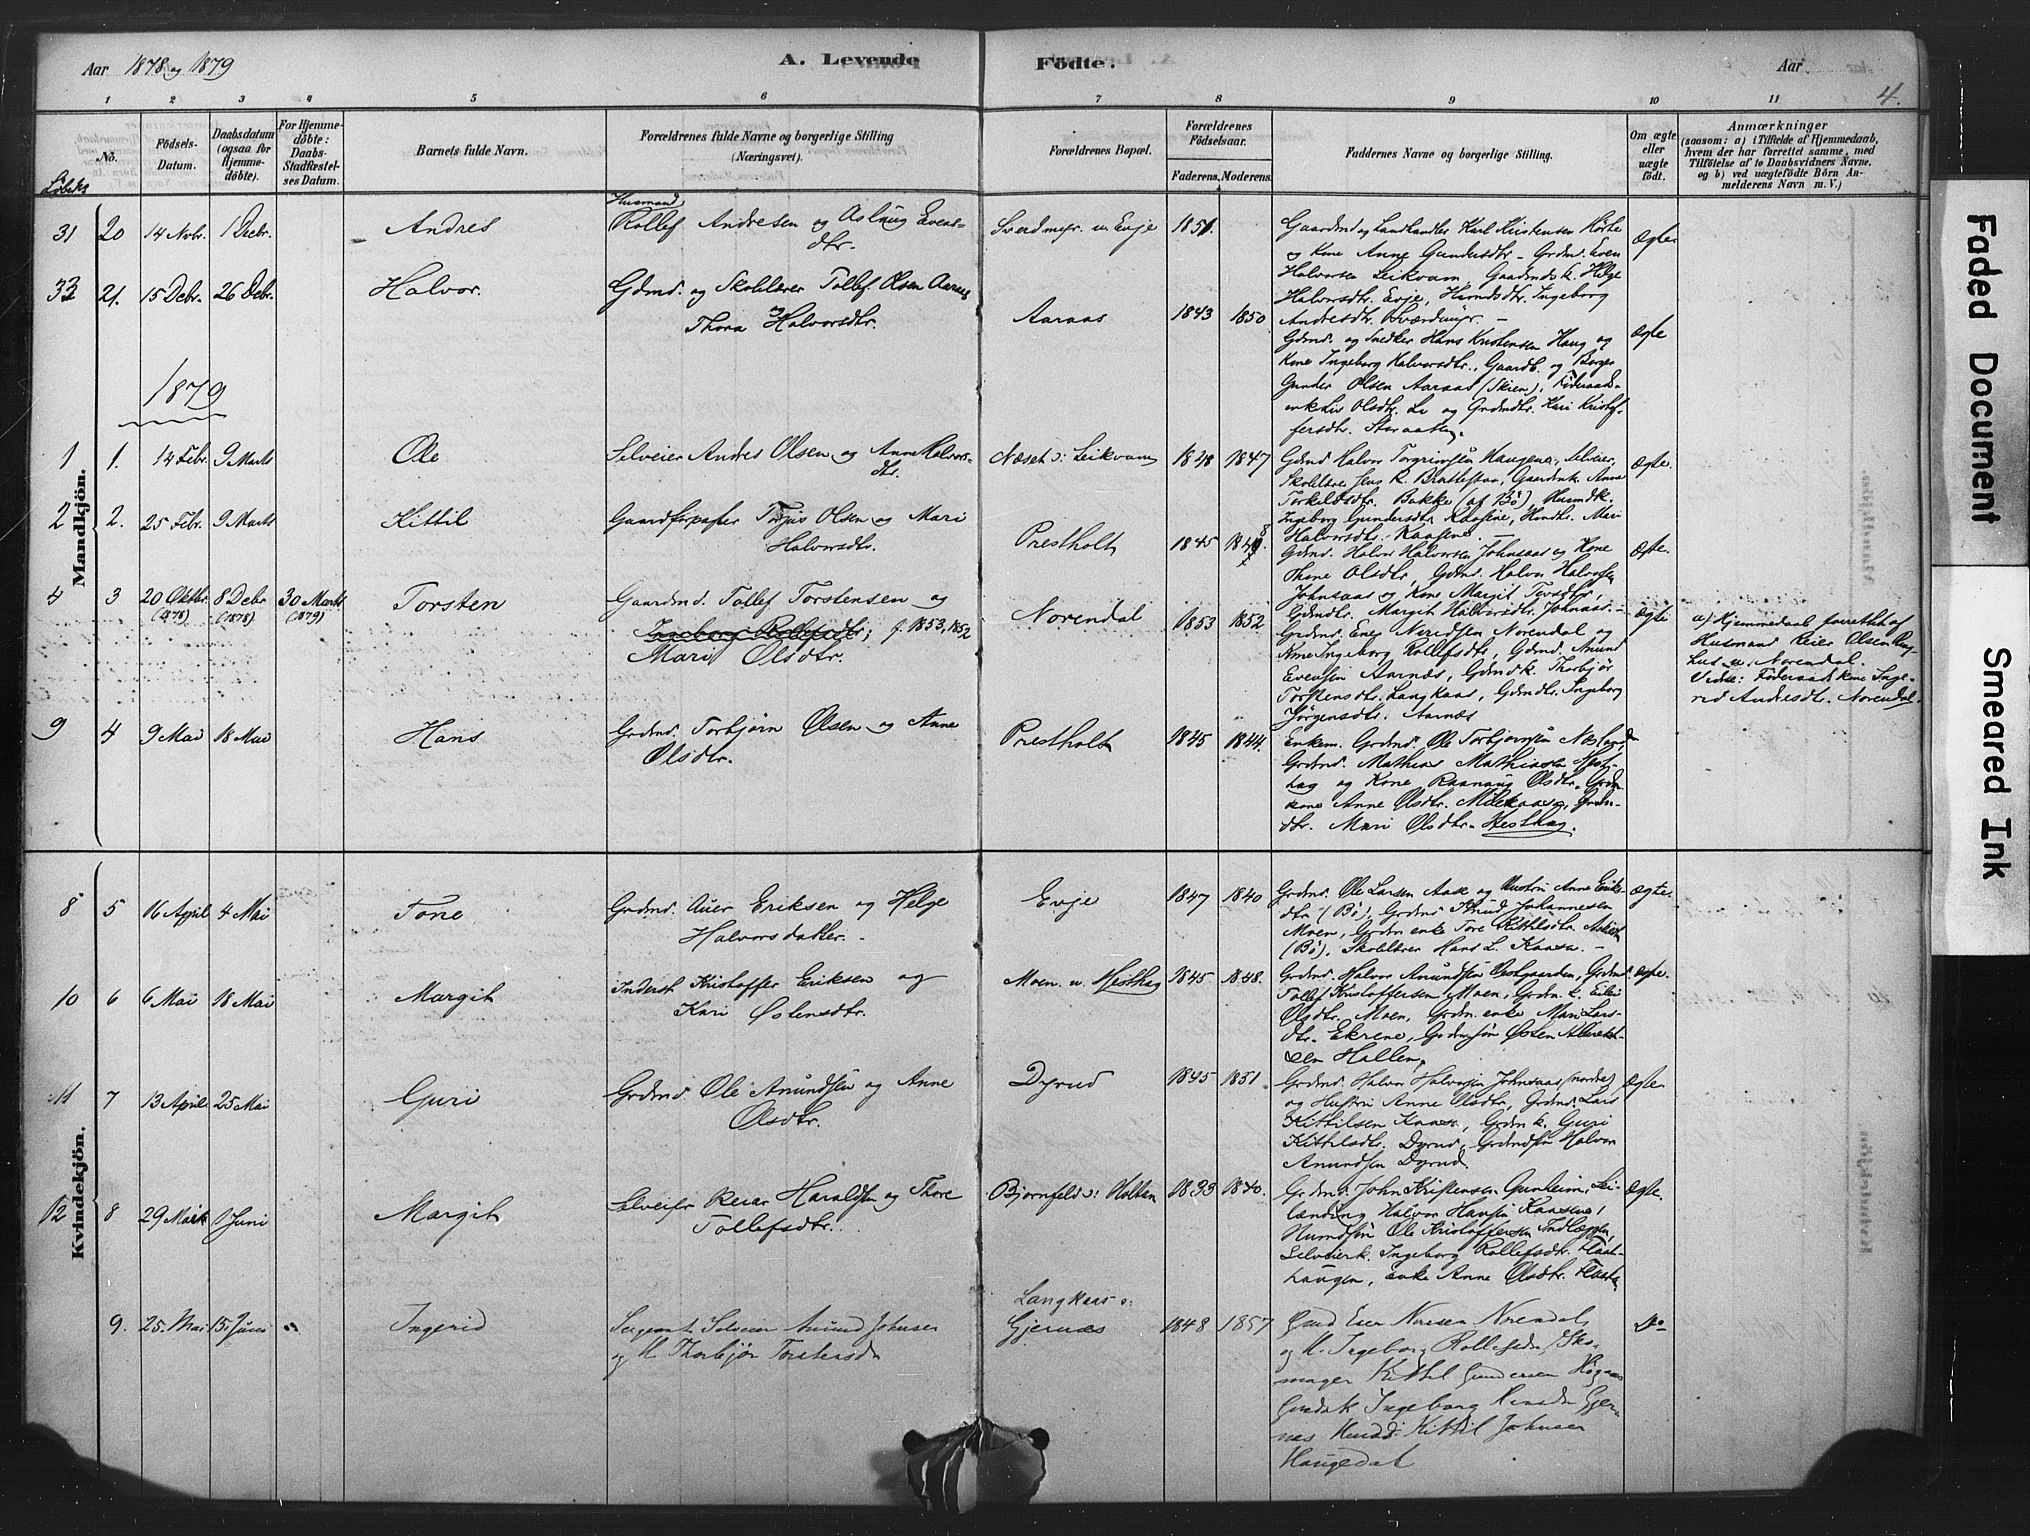 Aar 1878 og 1879
A. Levende Födte.
Aar
4.
1 2 3 4 5 6 7 8 9 10 11
Löbeks No.
Födsels-Datum.
Daabsdatum (ogsaa for Hjemmedöbte).
For Hjemmedöbte: Daabs-Stadfæstelses Datum.
Barnets fulde Navn.
Forældrenes fulde Navne og borgerlige Stilling (Næringsvei).
Forældrenes Bopæl.
Forældrenes Födselsaar.
Faderens. Moderens.
Faddernes Navne og borgerlige Stilling.
Om ægte eller uægte födt.
Anmærkninger
(saasom: a) i Tilfælde af Hjemmedaab,
hvem der har forrettet samme, med
Tilföielse af to Daabsvidners Navne,
og b) ved uægtefödte Börn Anmelderens Navn m. V.)
Mandkjön.
31 20 14 Novbr. 1 Decbr. Andres
Husmand
Rollef Andresen og Aslaug Evens-
dtr.
Sverdmyr. u. Evje 1851.
Gaardmd og Landhandler Karl Kristensen
og Kone Anne Gundersdtr. Grdmd. Even
Halvorsen Leikvam, Gaardmdsk. Helge
Halvorsdtr. Evje, Husmdsdtr. Ingeborg
Andresdtr. Sverdmyr. -
Ægte.
33 21. 15 Debr. 26 Debr. Halvor.
Gdmd. og Skolelærer Tollef Olsen Aaraas
og
Thora Halvorsdtr.
Aaraas 1843 1850
Gdmd. og Snedker Hans Kristensen Haug og
Kone Ingeborg Halvorsdtr., Gaardb. og Borger
Gunder Olsen Aaraas (Skien), Föderaads-
enke Liv Olsdtr. Li og Grdmdtr. Kari Kristof-
fersdtr.
Ægte
1879
1 1. 14 Febr. 9 Marts Ole
Selveier Andres Olsen og Anne Halvors-
dtr.
Næset u: Leikvam 1848 1847
Gdmd Halvor Torgrimsen Haugene, Selveier,
Skolelærer Jens K. Brattestaa, Gaardmk. Anne
Torkildsdtr. Bakke (af Bö), Husmdk.
Ingeborg Gundersdtr. Kaasene, Husmdtr. Mari
Halvorsdtr. Kaasene.
Ægte.
2 2. 25 Febr. 9 Marts Kittil
Gaardforpagter Torjus Olsen og Mari
Halvorsdtr.
Prestholt 1845 1848
Gdmd. Halvor Halvorsen Johnsaas og Kone
Thone Olsdtr, Gdmd. Halvor Halvorsen
Johnsaas og Kone Margit Tovsdtr,
Gdmdtr. Margit Halvorsdtr. Johnsaas. -
Ægte.
4 3 20 Oktbr. (1878) 8 Debr (1878) 30 Marts (1879) Torsten
Gaardmd. Tollef Torstensen og
Ingeborg Rollefsdtr; f. 1853, 1852
Mari Olsdtr.
Norendal 1853 1852
Grdmd. Enes Neridsen Norendal og
Kone Ingeborg Rollefsdtr, Gdmd. Anund
Evensen Aarnæs, Gdmdk. Thorbjör
Torstensdtr. Langkaas, Gdmdtr. Ingeborg
Jörgensdtr. Aarnæs
Ægte
a) Hjemmedaab forrettet af
Husmand Reier Olsen Ring-
hus u. Norendal.
Vidne: Föderaadskone Inge-
rid Andresdtr. Norendal.
9 4 9 Mai 18 Mai Hans
Grdmd. Torbjörn Olsen og Anne
Olsdtr.
Prestholt 1845 1844.
Enkem. Grdmd. Ole Torbjornsen Næsland,
Grdmd. Mathias Mathiasen Hest-
hag og Kone Rannaug Olsdtr, Grdm-
kone Anne Olsdtr. Milekaasa, Grdm-
dtr. Mari Olsdtr. Hesthag.
Kvindekjön.
8 5 16 April 4 Mai Tone
Grdmd. Auer Eriksen og Helge
Halvorsdatter. -
Evje 1847 1840
Grdmd. Ole Larsen Aase og Hustru Anne Eriks-
dtr (Bö), Grdmd Knud Johannesen
Moen, Grdm enke Tore Kittilsdtr.
(Bö), Skolelærer Hans L. Kaasa. -
Ægte.
10 6 6 Mai 18 Mai Margit
Inderst Kristoffer Eriksen og
Kari Östensdtr.
Moen u. Hesthag 1845 1848.
Grdmd. Halvor Anundsen Östgaarden, Grdmd.
Tollef Kristoffersen Moen, Grdm k. Eilei
Olsdtr. Moen, Grdm. enke Mari Lars-
dtr. Ekrene, Grdmsön Östen Albrekt-
sen Hallen.
Ægte.
11 7 13 April 25 Mai Guri
Grdmd. Ole Anundsen og Anne
Olsdtr.
Dyrud 1845 1851.
Grdmd. Halvor Halvorsen Johnsaas (nordre)
og Hustru Anne Olsdtr, Grdmd. Lars
Kittilsen Kaasa, Grdm k. Guri
Kittilsdtr. Dyrud, Grdmdsön Halvor
Anundsen Dyrud.
Ægte.
12 8 29 Marts 1 Juni Margit
Selveier Reiar Haraldsen og Thore
Tollefsdtr.
Bjornfeld u: Holtan 1833 1840.
Grdmd. John Kristensen Gunheim, Lei-
lænding Halvor Hansen Kaasene,
Husmdsön Ole Kristoffersen Indlæggen,
Selveierk. Ingeborg Rollefsdtr. Flaat-
haugen, enke Anne Olsdtr. Flaata
Ægte.
9. 25. Mai 15 Juni " Ingerid
Sergeant Selveier Anund Johnsen
og H. Thorbjör Torstensdr
Langkaas u:
Gjernæs 1848 1857
Gmd Enes Nersen Norendal
og H. Ingeborg Rollefsdr, Sko-
mager Kittil Gundersen Högaas
Gmdsk Ingeborg Gjer-
næs Husmd: Kittil Johnsen
Haugedal
Do
Faded Document
Smeared Ink